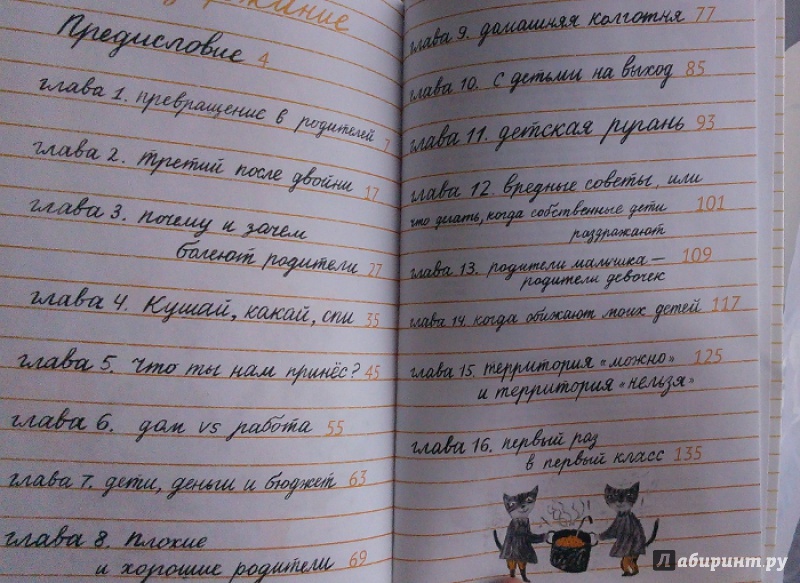 Предисловие 4
глава 1. превращение в родителей 7
глава 2. третий после двойни 17
глава 3. почему и зачем
болеют родители 27
глава 4. Кушай, какай, спи 35
глава 5. что ты нам принёс? 45
глава 6. дом vs работа 55
глава 7. дети, деньги и бюджет 63
глава 8. плохие
и хорошие родители 69
глава 9. домашняя колготня 77
глава 10. с детьми на выход 85
глава 11. детская ругань 93
глава 12. вредные советы, или
что делать, когда собственные дети
раздражают 101
глава 13. родители мальчика —
родители девочек 109
глава 14. когда обижают моих детей 117
глава 15. территория «можно»
и территория «нельзя» 125
глава 16. первый раз
в первый класс 135
Лабиринт.ру